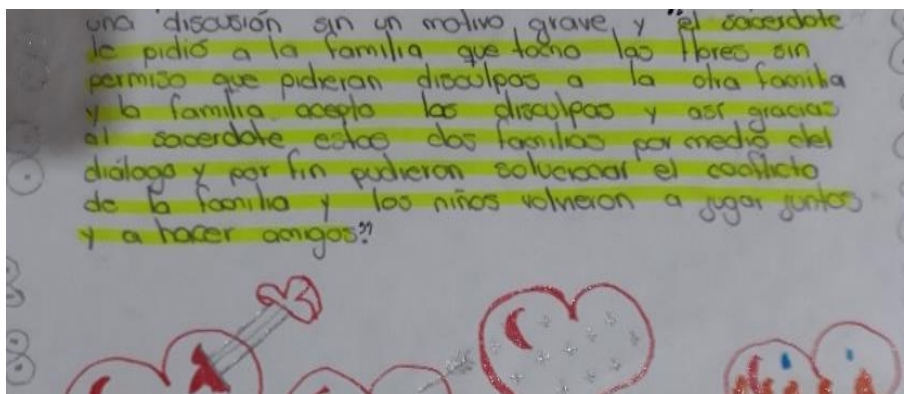 una discusión sin un motivo grave y "el sacerdote
le pidió a la familia que tomo las flores sin
permiso que pidieran disculpas a la otra familia
y la familia acepto las disculpas y así gracias
al sacerdote estas dos familias por medio del
diálogo y por fin pudieron solucionar el conflicto
de la familia y los niños volvieron a jugar juntos
y a hacer amigos."